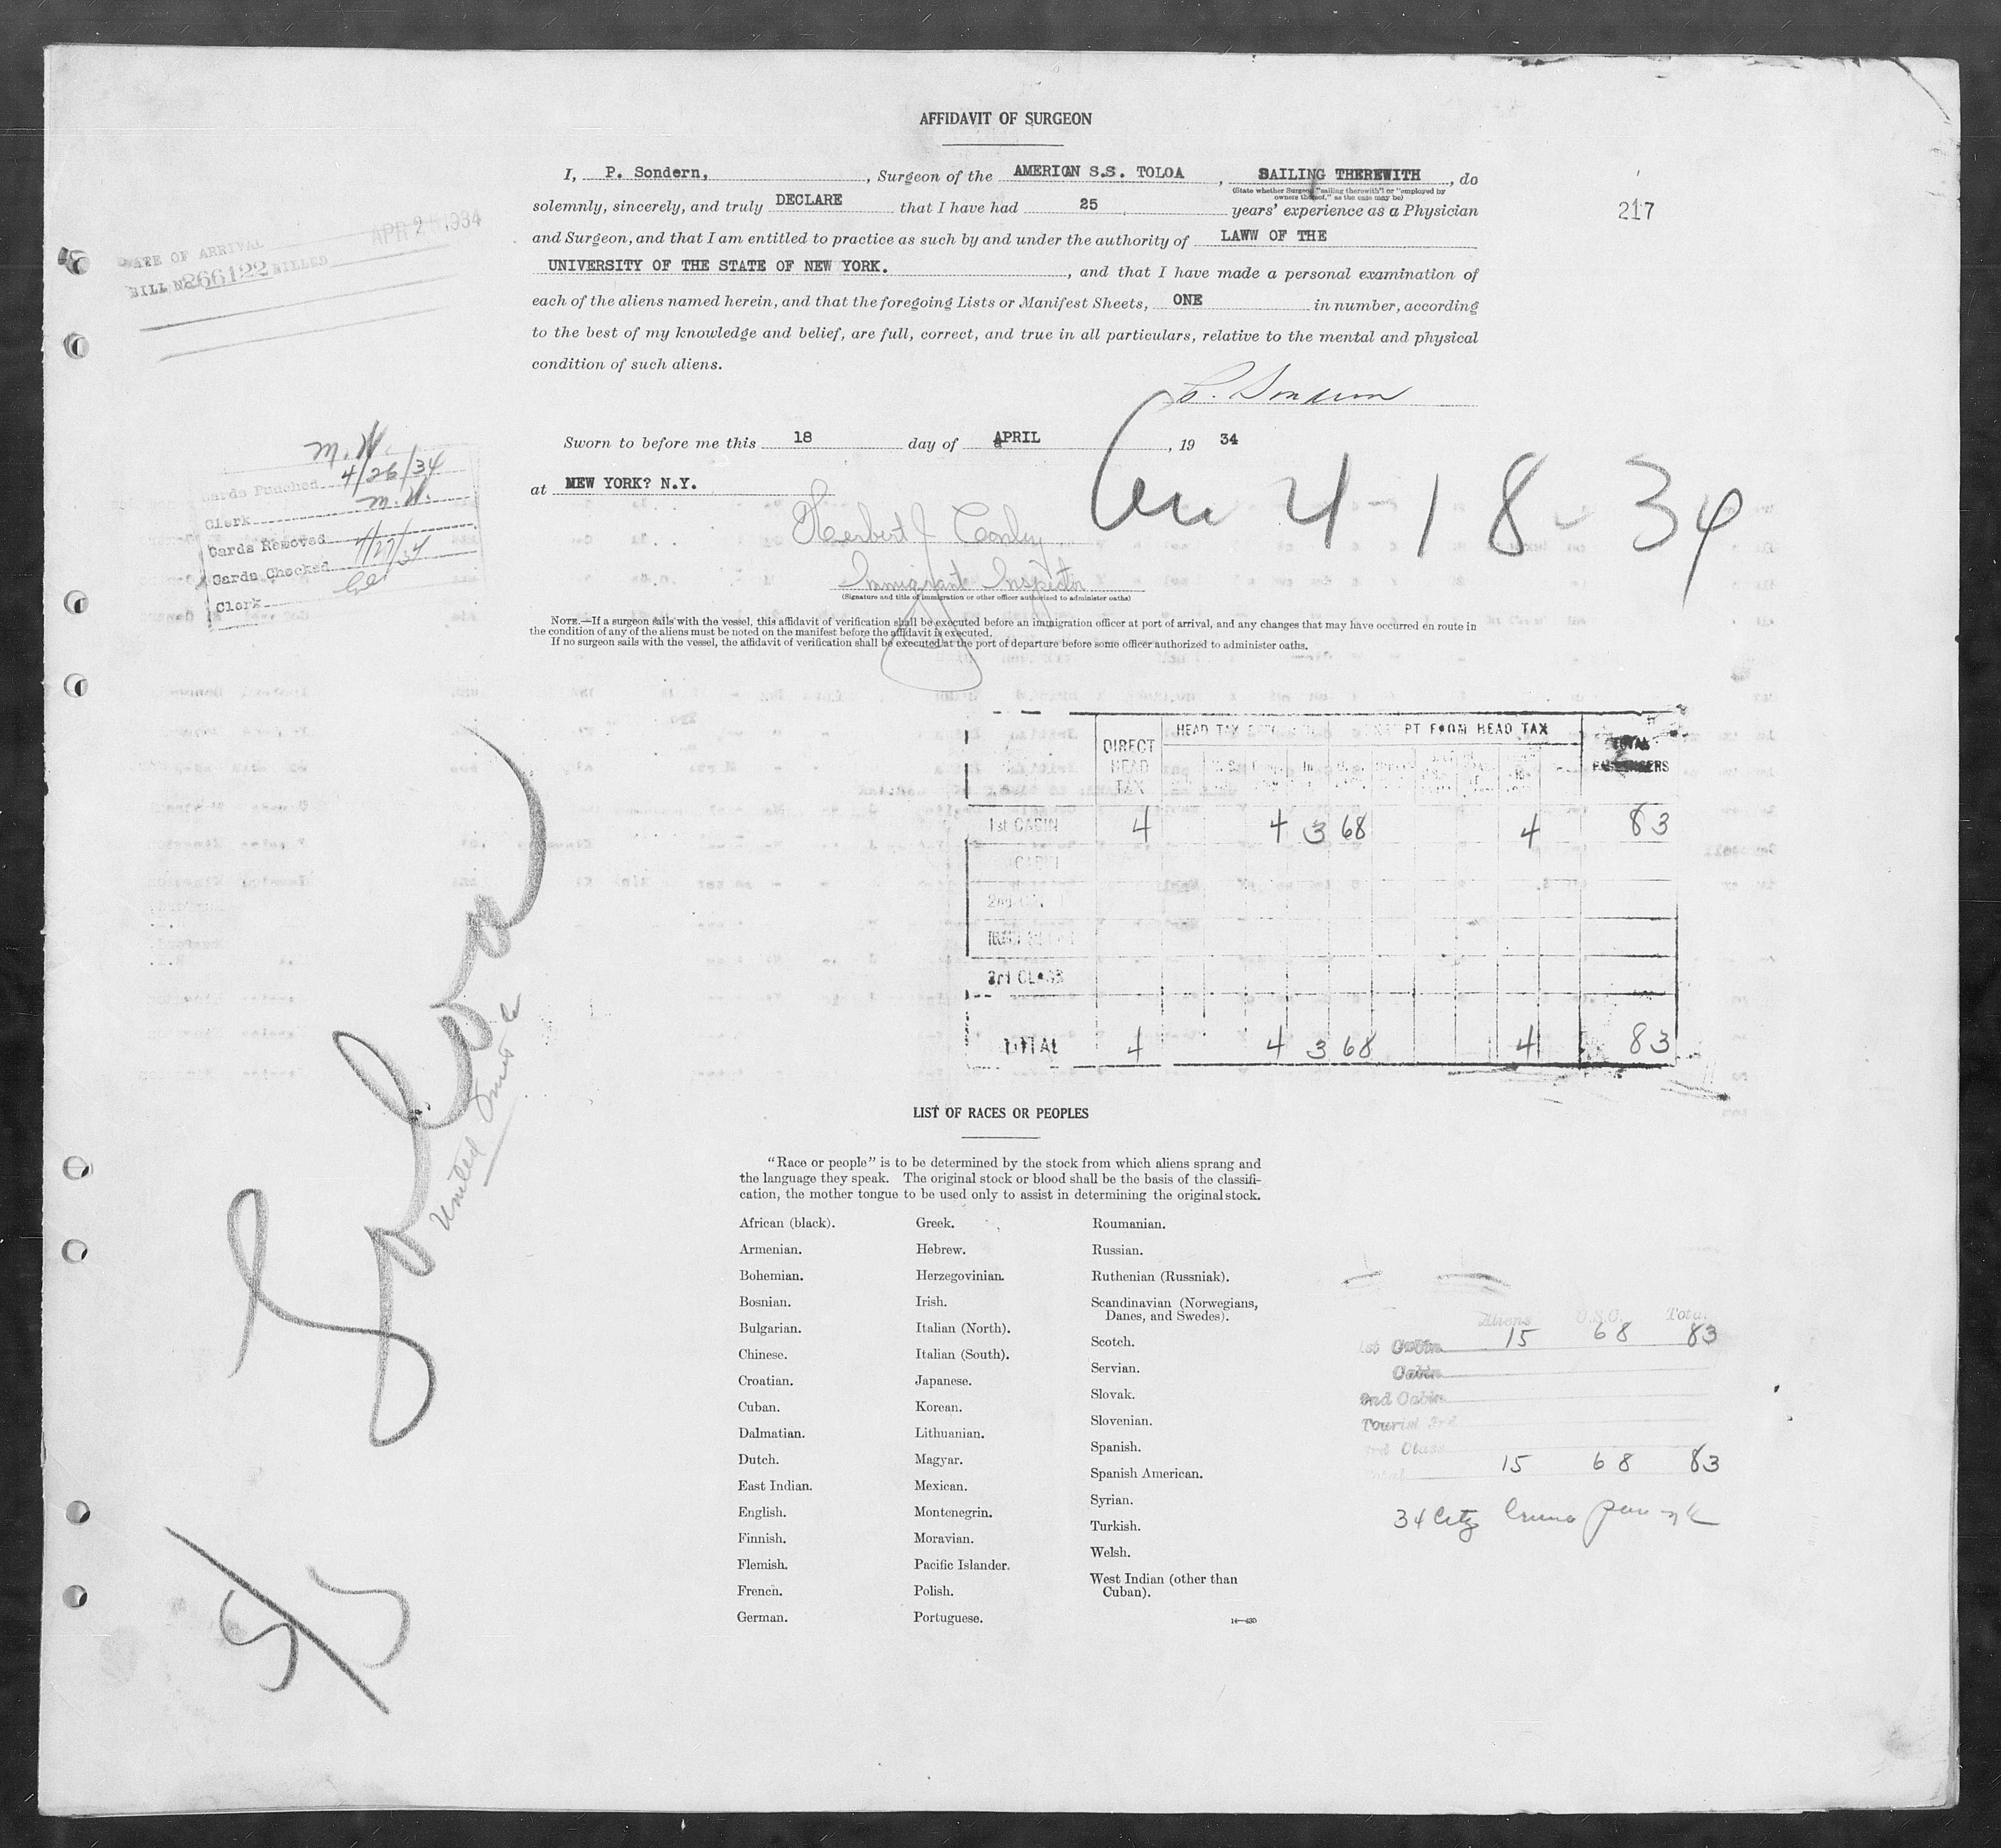 AFFIDAVIT OF SURGEON
I, P. Sondern, , Surgeon of the AMERICAN S.S. TOLOA , SAILING THEREWITH , do
(State whether Surgeon "sailing therewith" or "employed by
owners thereof," as the case may be)
solemnly, sincerely, and truly DECLARE that I have had 25 years' experience as a Physician
217
and Surgeon, and that I am entitled to practice as such by and under the authority of LAWW OF THE
UNIVERSITY OF THE STATE OF NEW YORK. , and that I have made a personal examination of
each of the aliens named herein, and that the foregoing Lists or Manifest Sheets, ONE in number, according
to the best of my knowledge and belief, are full, correct, and true in all particulars, relative to the mental and physical
condition of such aliens.
P. Sondern
Sworn to before me this 18 day of APRIL , 19 34
at NEW YORK? N.Y.
4-18-34
Herbert J Conley
Immigrant Inspector
(Signature and title of immigration or other officer authorized to administer oaths)
NOTE.—If a surgeon sails with the vessel, this affidavit of verification shall be executed before an immigration officer at port of arrival, and any changes that may have occurred en route in
the condition of any of the aliens must be noted on the manifest before the affidavit is executed.
If no surgeon sails with the vessel, the affidavit of verification shall be executed at the port of departure before some officer authorized to administer oaths.
APR 2 1934
DATE OF ARRIVAL
BILL No 866122 BILLED
M.H.
Cards Punched 4/26/34
Clerk M.H.
Cards Removed
Cards Checked 4/27/34
Clerk
Toloa
United Fruit Co
5/5
DIRECT HEAD TAX
HEAD TAX
PT FROM HEAD TAX
TOTAL PASSENGERS
1st CABIN 4 4 3 68 4 83
CABIN
2nd
3rd CLASS
TOTAL 4 4 3 68 4 83
LIST OF RACES OR PEOPLES
"Race or people" is to be determined by the stock from which aliens sprang and
the language they speak. The original stock or blood shall be the basis of the classifi-
cation, the mother tongue to be used only to assist in determining the original stock.
African (black).
Armenian.
Bohemian.
Bosnian.
Bulgarian.
Chinese.
Croatian.
Cuban.
Dalmatian.
Dutch.
East Indian.
English.
Finnish.
Flemish.
French.
German.
Greek.
Hebrew.
Herzegovinian.
Irish.
Italian (North).
Italian (South).
Japanese.
Korean.
Lithuanian.
Magyar.
Mexican.
Montenegrin.
Moravian.
Pacific Islander.
Polish.
Portuguese.
Roumanian.
Russian.
Ruthenian (Russniak).
Scandinavian (Norwegians,
Danes, and Swedes).
Scotch.
Servian.
Slovak.
Slovenian.
Spanish.
Spanish American.
Syrian.
Turkish.
Welsh.
West Indian (other than
Cuban).
14—430
Aliens U.S.C. Total
1st Cabin 15 68 83
Cabin
2nd Cabin
Tourist 3rd
3rd Class
Total 15 68 83
34